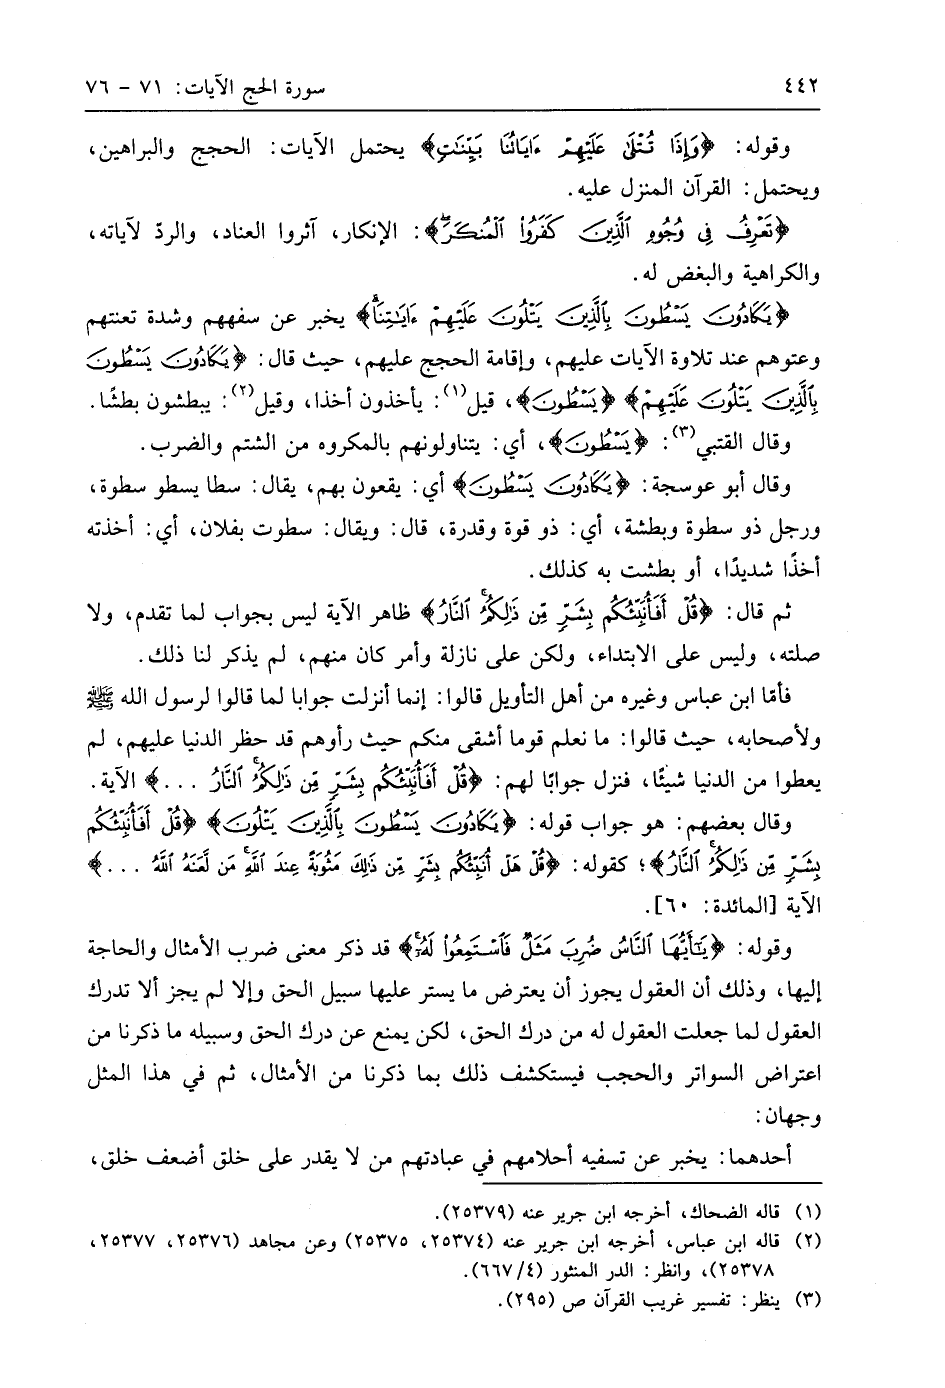 ٤٤٢ سورة الحج الآيات: ٧١ - ٧٦
وقوله: ﴿وَإِذَا تُتْلَىٰ عَلَيْهِمْ ءَايَاتُنَا بَيِّنَاتٍ﴾ يحتمل الآيات: الحجج والبراهين،
ويحتمل: القرآن المنزل عليه.
﴿تَعْرِفُ فِي وُجُوهِ ٱلَّذِينَ كَفَرُوا۟ ٱلْمُنكَرَ﴾: الإنكار، آثروا العناد، والردّ لآياته،
والكراهية والبغض له.
﴿يَكَادُونَ يَسْطُونَ بِٱلَّذِينَ يَتْلُونَ عَلَيْهِمْ ءَايَـٰتِنَا﴾ يخبر عن سفههم وشدة تعنتهم
وعتوهم عند تلاوة الآيات عليهم، وإقامة الحجج عليهم، حيث قال: ﴿يَكَادُونَ يَسْطُونَ
بِٱلَّذِينَ يَتْلُونَ عَلَيْهِمْ﴾ ﴿يَسْطُونَ﴾، قيل(١): يأخذون أخذا، وقيل(٢): يبطشون بطشًا.
وقال القتبي(٣): ﴿يَسْطُونَ﴾، أي: يتناولونهم بالمكروه من الشتم والضرب.
وقال أبو عوسجة: ﴿يَكَادُونَ يَسْطُونَ﴾ أي: يقعون بهم، يقال: سطا يسطو سطوة،
ورجل ذو سطوة وبطشة، أي: ذو قوة وقدرة، قال: ويقال: سطوت بفلان، أي: أخذته
أخذًا شديدًا، أو بطشت به كذلك.
ثم قال: ﴿قُلْ أَفَأُنَبِّئُكُم بِشَرٍّ مِّن ذَٰلِكُمُ ٱلنَّارُ﴾ ظاهر الآية ليس بجواب لما تقدم، ولا
صلته، وليس على الابتداء، ولكن على نازلة وأمر كان منهم، لم يذكر لنا ذلك.
فأمّا ابن عباس وغيره من أهل التأويل قالوا: إنما أنزلت جوابا لما قالوا لرسول الله ﷺ
ولأصحابه، حيث قالوا: ما نعلم قوما أشقى منكم حيث رأوهم قد حظر الدنيا عليهم، لم
يعطوا من الدنيا شيئًا، فنزل جوابًا لهم: ﴿قُلْ أَفَأُنَبِّئُكُم بِشَرٍّ مِّن ذَٰلِكُمُ ٱلنَّارُ ...﴾ الآية.
وقال بعضهم: هو جواب قوله: ﴿يَكَادُونَ يَسْطُونَ بِٱلَّذِينَ يَتْلُونَ﴾ ﴿قُلْ أَفَأُنَبِّئُكُم
بِشَرٍّ مِّن ذَٰلِكُمُ ٱلنَّارُ﴾؛ كقوله: ﴿قُلْ هَلْ أُنَبِّئُكُم بِشَرٍّ مِّن ذَٰلِكَ مَثُوبَةً عِندَ ٱللَّهِ مَن لَّعَنَهُ ٱللَّهُ ...﴾
الآية [المائدة: ٦٠].
وقوله: ﴿يَـٰٓأَيُّهَا ٱلنَّاسُ ضُرِبَ مَثَلٌ فَٱسْتَمِعُوا۟ لَهُۥٓ﴾ قد ذكر معنى ضرب الأمثال والحاجة
إليها، وذلك أن العقول يجوز أن يعترض ما يستر عليها سبيل الحق وإلا لم يجز ألا تدرك
العقول لما جعلت العقول له من درك الحق، لكن يمنع عن درك الحق وسبيله ما ذكرنا من
اعتراض السواتر والحجب فيستكشف ذلك بما ذكرنا من الأمثال، ثم في هذا المثل
وجهان:
أحدهما: يخبر عن تسفيه أحلامهم في عبادتهم من لا يقدر على خلق أضعف خلق،
(١) قاله الضحاك، أخرجه ابن جرير عنه (٢٥٣٧٩).
(٢) قاله ابن عباس، أخرجه ابن جرير عنه (٢٥٣٧٤، ٢٥٣٧٥) وعن مجاهد (٢٥٣٧٦، ٢٥٣٧٧،
٢٥٣٧٨)، وانظر: الدر المنثور (٤/٦٦٧).
(٣) ينظر: تفسير غريب القرآن ص (٢٩٥).